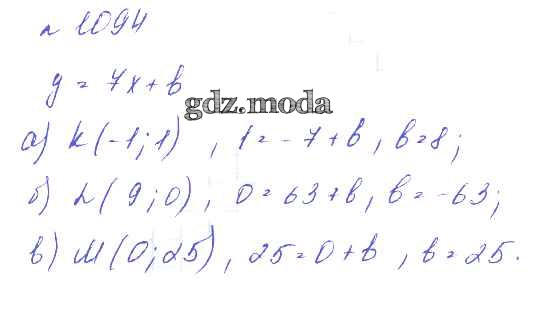 n 1094
y = 7x + b
gdz.moda
а) K(-1; 1), 1 = -7 + b, b = 8;
б) L(9; 0), 0 = 63 + b, b = -63;
в) M(0; 25), 25 = 0 + b, b = 25.